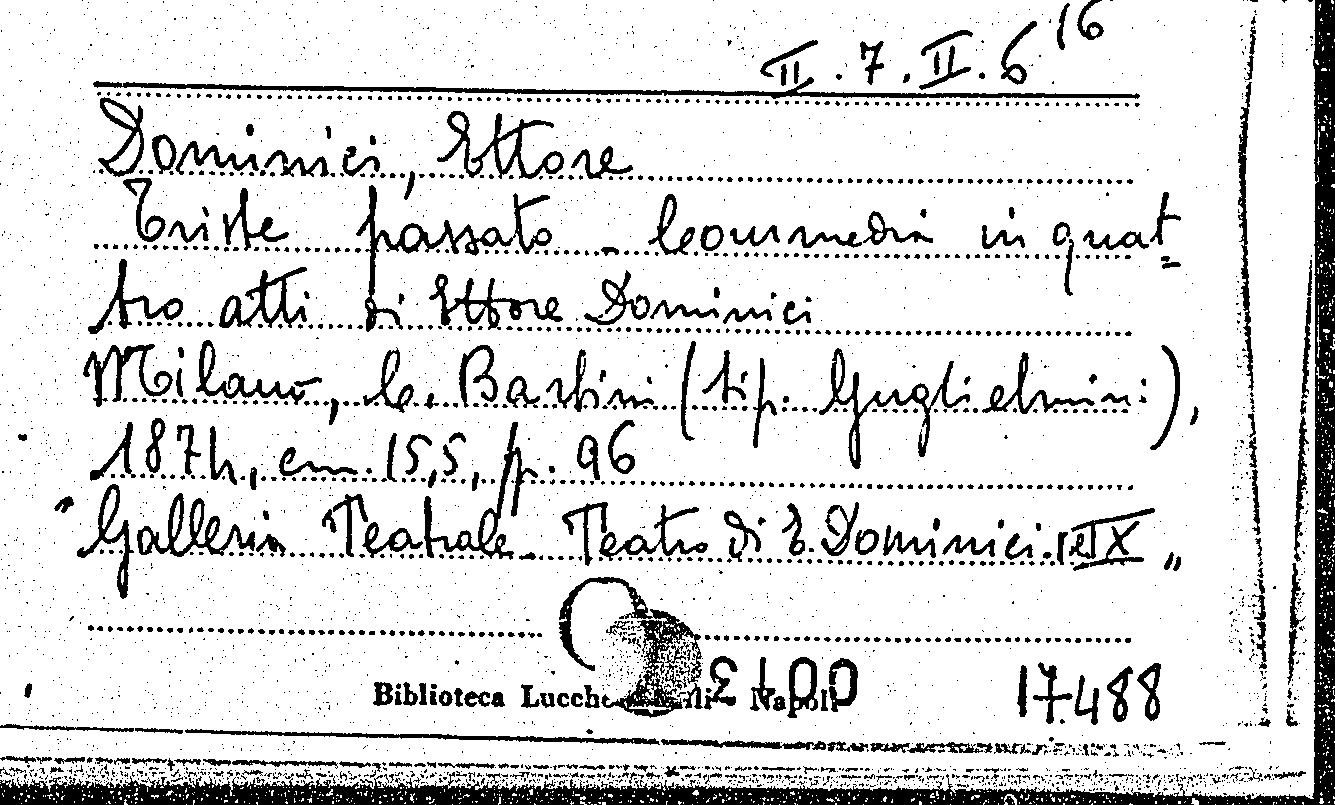 II.7.II.6 16
Dominici, Ettore
Triste passato - Commedia in quat=
tro atti di Ettore Dominici
Milano, C. Barbini (tip. Guglielmini),
1874, cm. 15,5, p. 96
"Galleria Teatrale - Teatro di E. Dominici. IX"
Biblioteca Napoli
17488